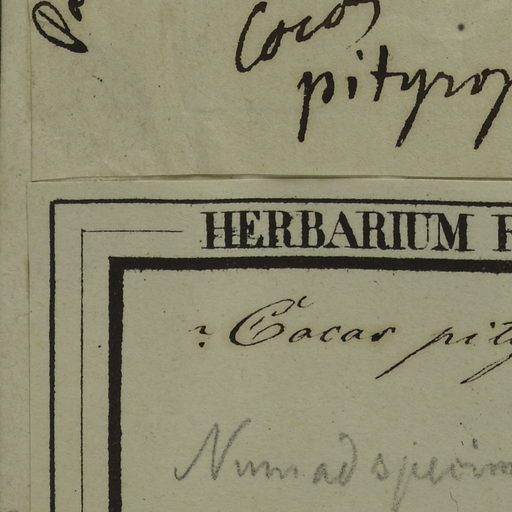 Pa
Cocos
pityrop
HERBARIUM
? Cocos pity
Num ad specim